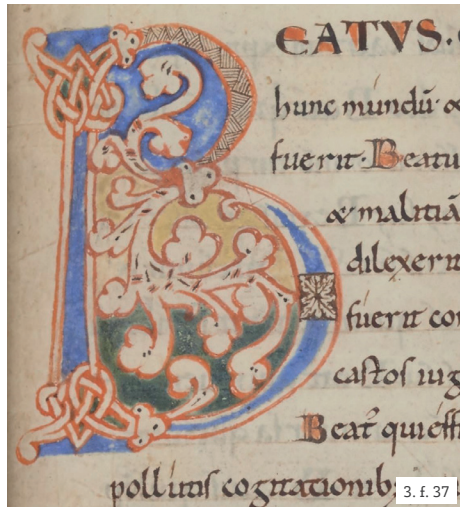 BEATVS.
hunc mundū &
fuerit. Beatu
& malitiā
dilexerit
fuerit con
castos uig
Beat᷒ qui eff
pollutis cogitationib;
3. f. 37